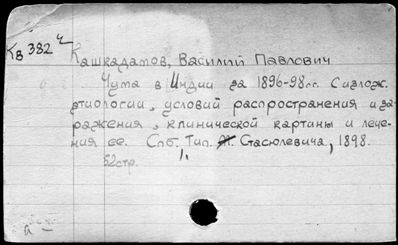 Кв 382 4
Кашкадамов, Василий Павлович
Чума в Индии за 1896-98 г.г. С излож.
этиологии, условий распространения и за-
ражения, клинической картины и лече-
ния ее. Спб. Тип. М. Стасюлевича, 1898.
52 стр.
а -